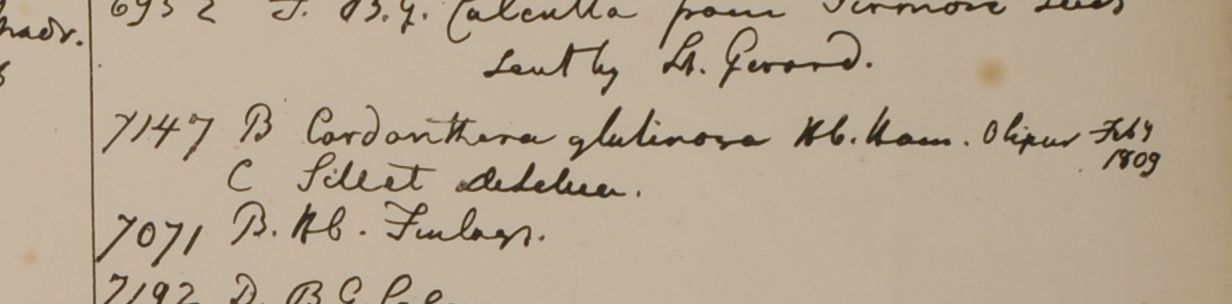 6952 F. B.G. Calcutta from Sirmore seeds
sent by Lt. Gerard.
7147 B Cardanthera glutinosa Hb. Ham. Olipur Feby 1809
C Sillet deSelua.
7071 B. Hb. Finlays.
7192 D. B G